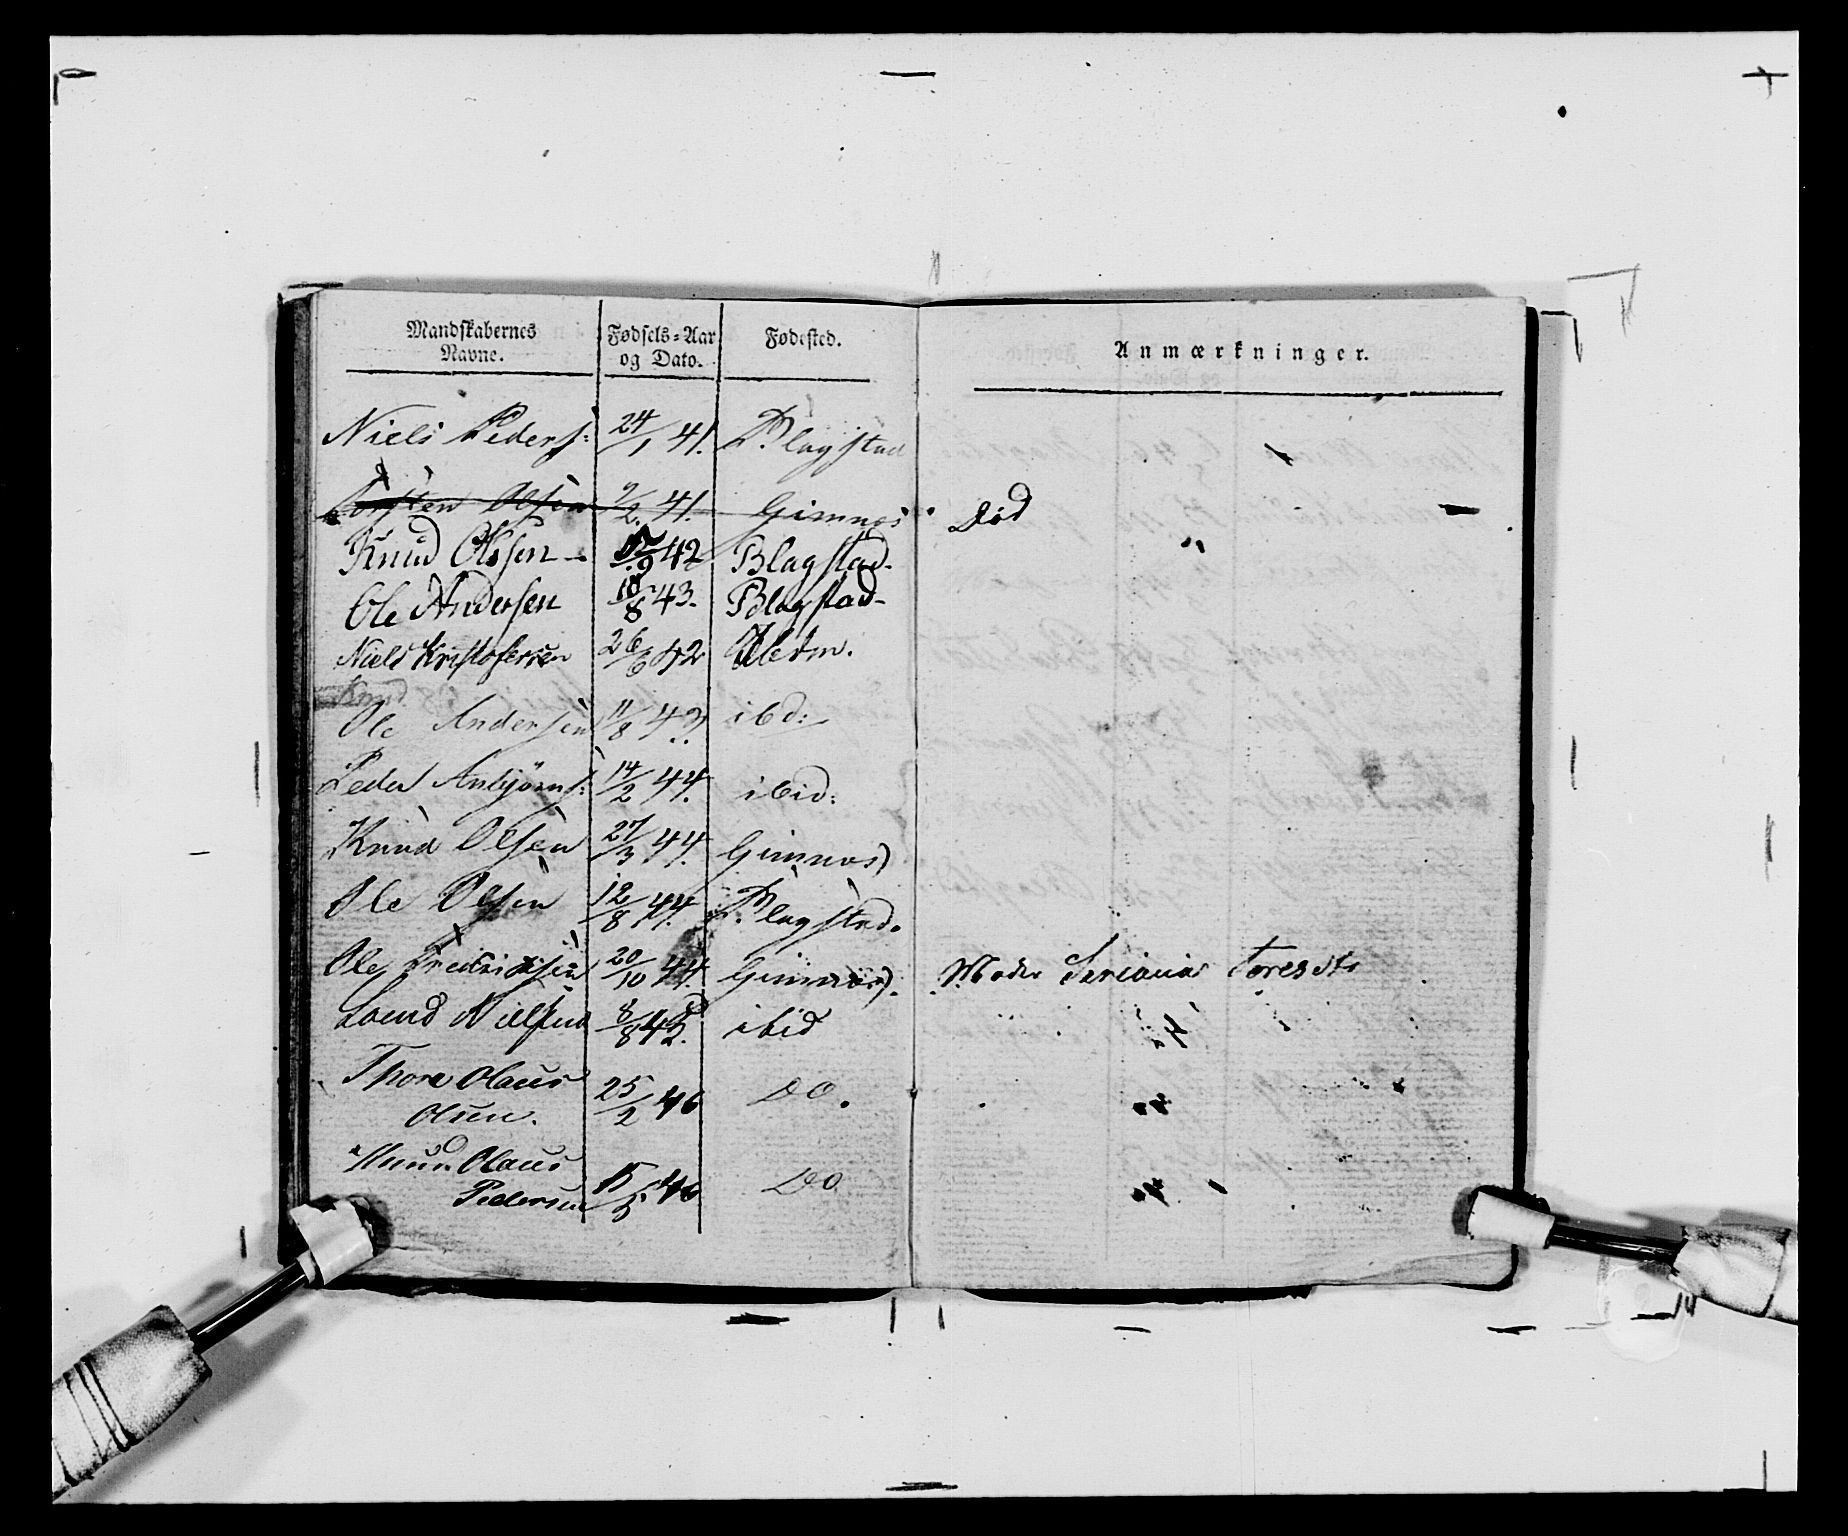 Mandskabernes Navne. Fødsels-Aar og Dato. Fødested. Anmærkninger.
Niels Peders: 24/1 41. Blagstad
Torsten Olsen 9/2 41. Gimnæs Død
Knud Olsen 42 Blagstad.
Ole Andersen 18/8 43. Blagstad
Niels Kristofersen 26/6 42
Knud
Ole Andersen 11/8 43 ibd:
Peder Anbjørns: 14/2 44. ibid:
Knud Olsen 27/3 44. Gimnæs
Ole Olsen 12/8 44. Blagstad.
Ole Fredriksen 20/10 44. Gimnæs. Moder
Nielsen 8/8 ibid
Thore Olaus 25/2 46 Do.
Olsen.
Knud Olaus
Pedersen 46 Do